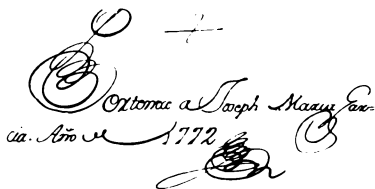 Soxtomac a Joseph Maria Gar-
cia. Año de 1772